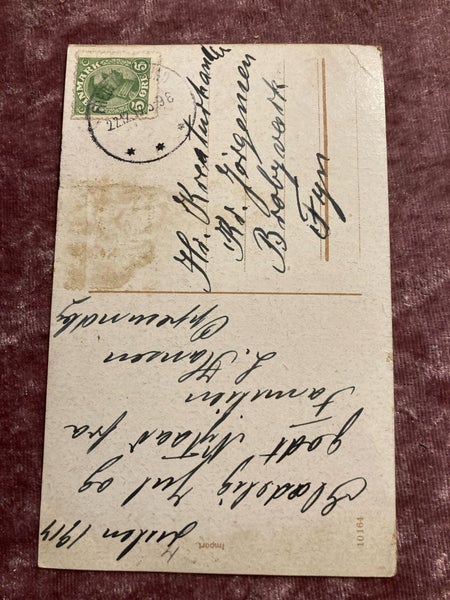 Julen 1914
Glædelig Jul og
godt Nytaar fra
Familien
L. Hansen
Oppesundby
Hr. Kreaturhandler
Kr. Jørgensen
Brobyværk
Fyn
DANMARK
5 ØRE 5
22.12
Import
10164